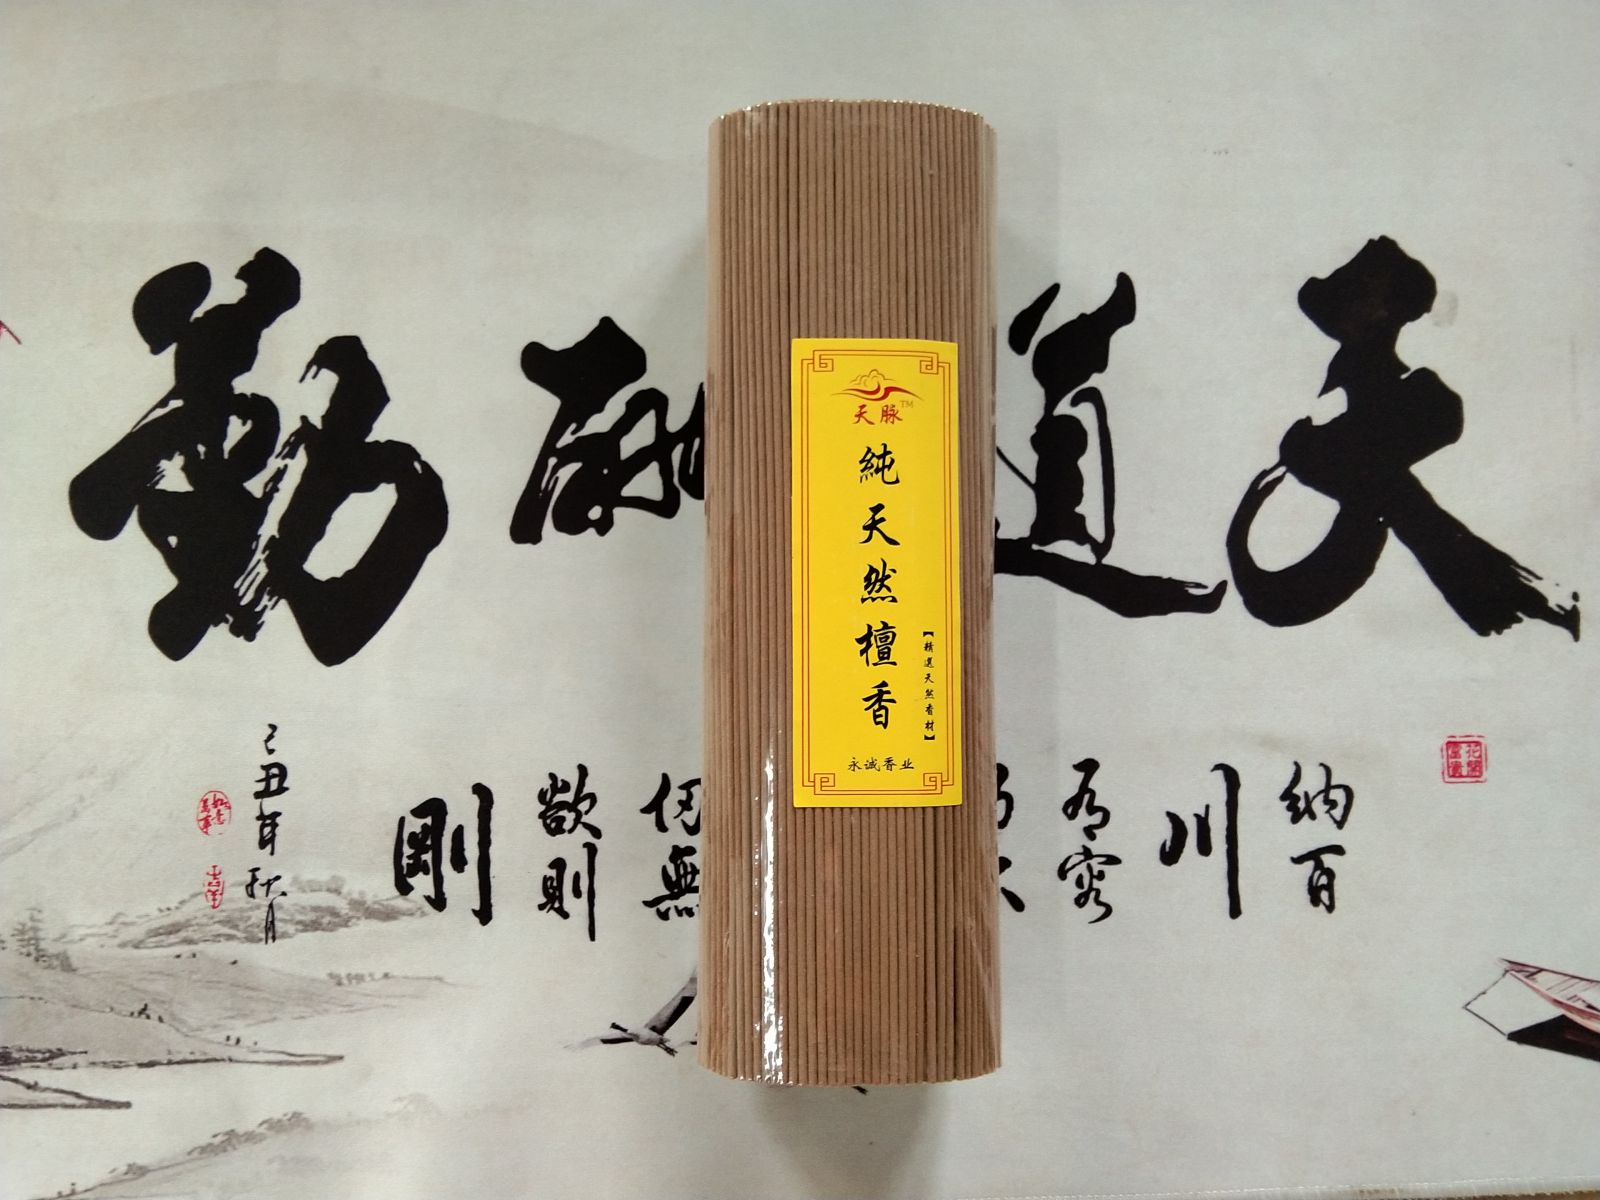 天道酬勤
天脉™
純天然檀香
【精選天然香材】
永诚香业
納百
川
有容
仞無
欲則
剛
己丑年秋月